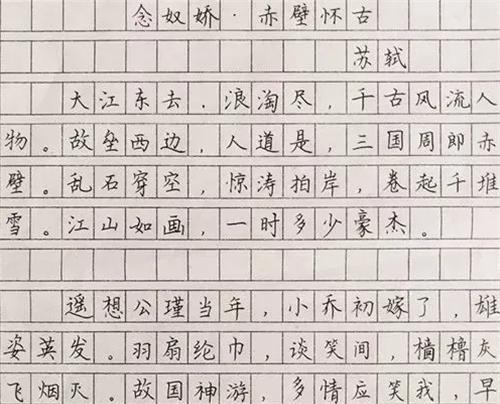 念奴娇·赤壁怀古
苏轼
大江东去.浪淘尽,千古风流人
物。故垒西边,人道是,三国周郎赤
壁。乱石穿空,惊涛拍岸,卷起千堆
雪。江山如画,一时多少豪杰。
遥想公瑾当年,小乔初嫁了,雄
姿英发。羽扇纶巾,谈笑间,樯橹灰
飞烟灭。故国神游,多情应笑我,早